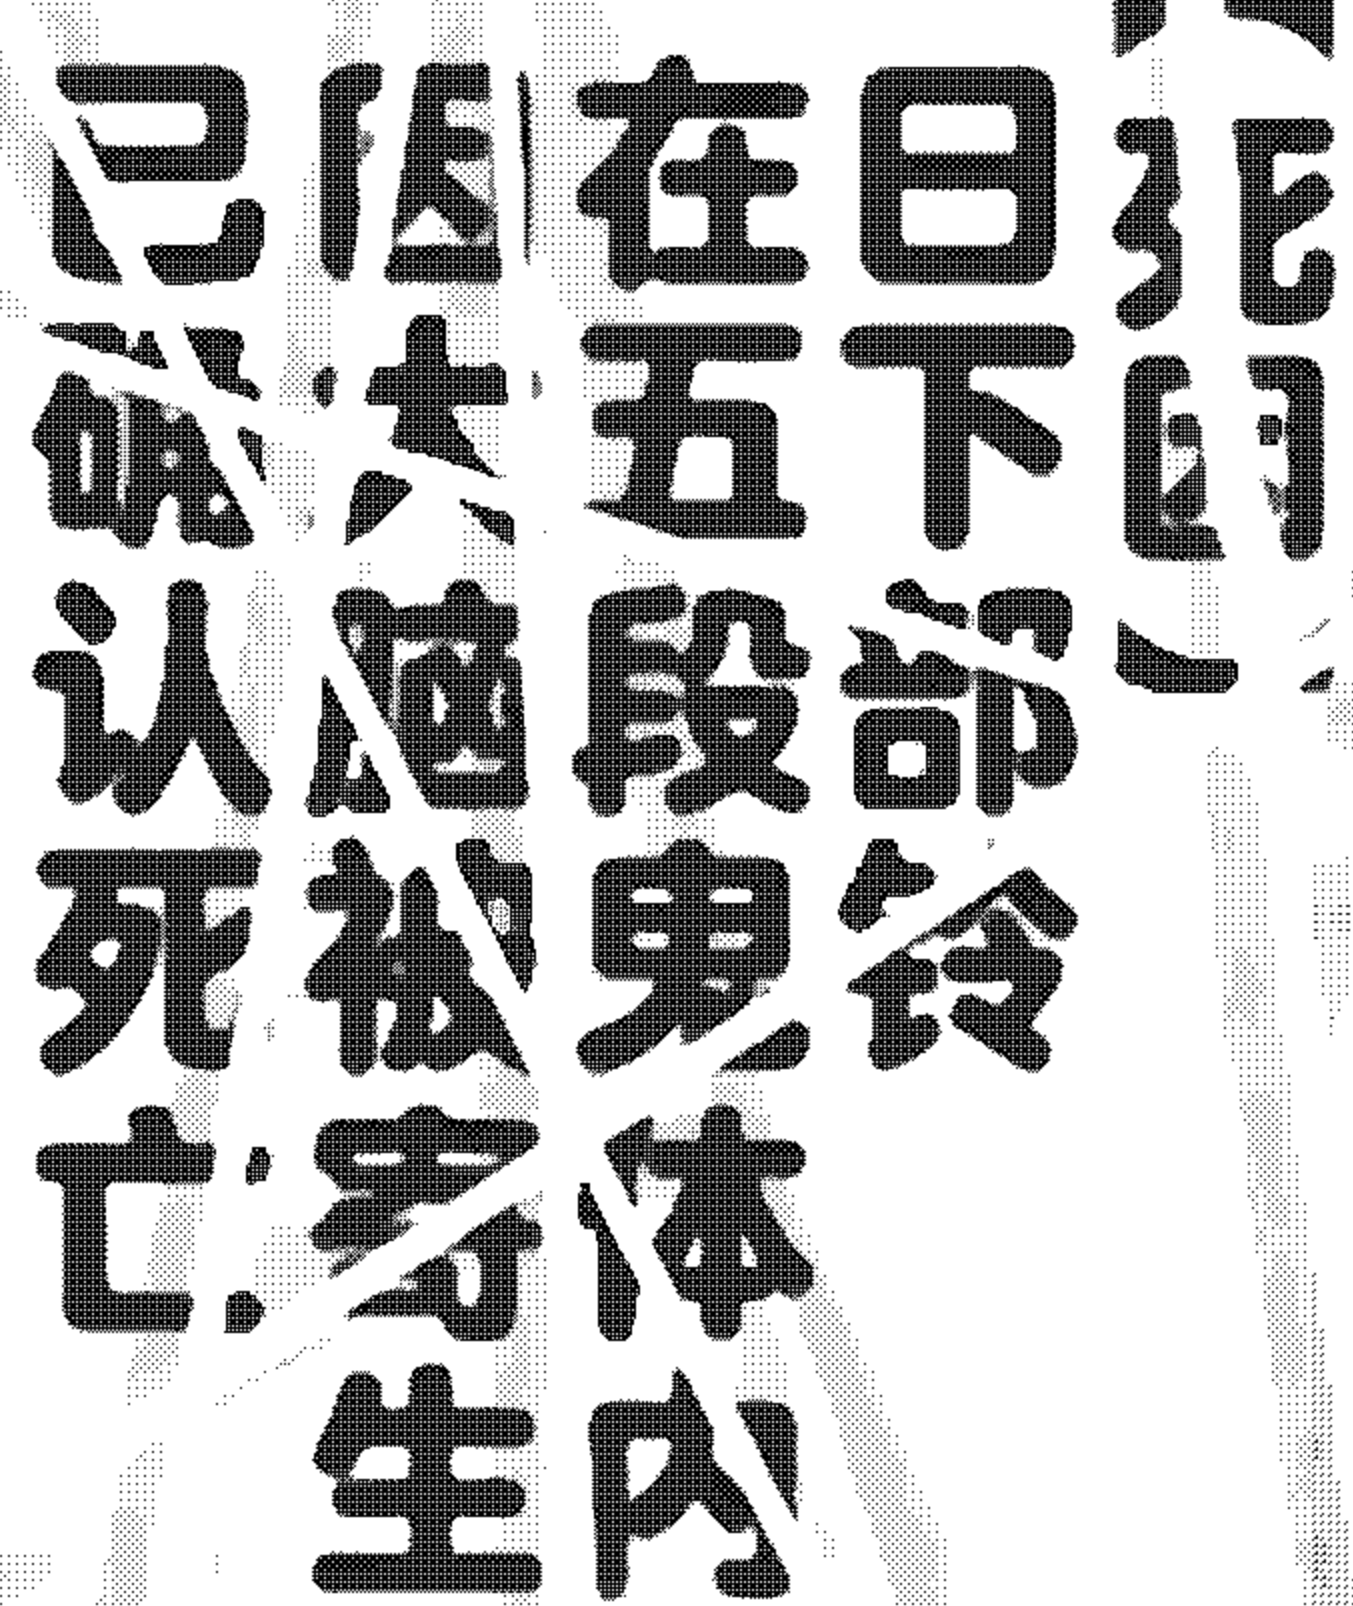 日下部铃
在五段男体内
因大脑被寄生
已确认死亡